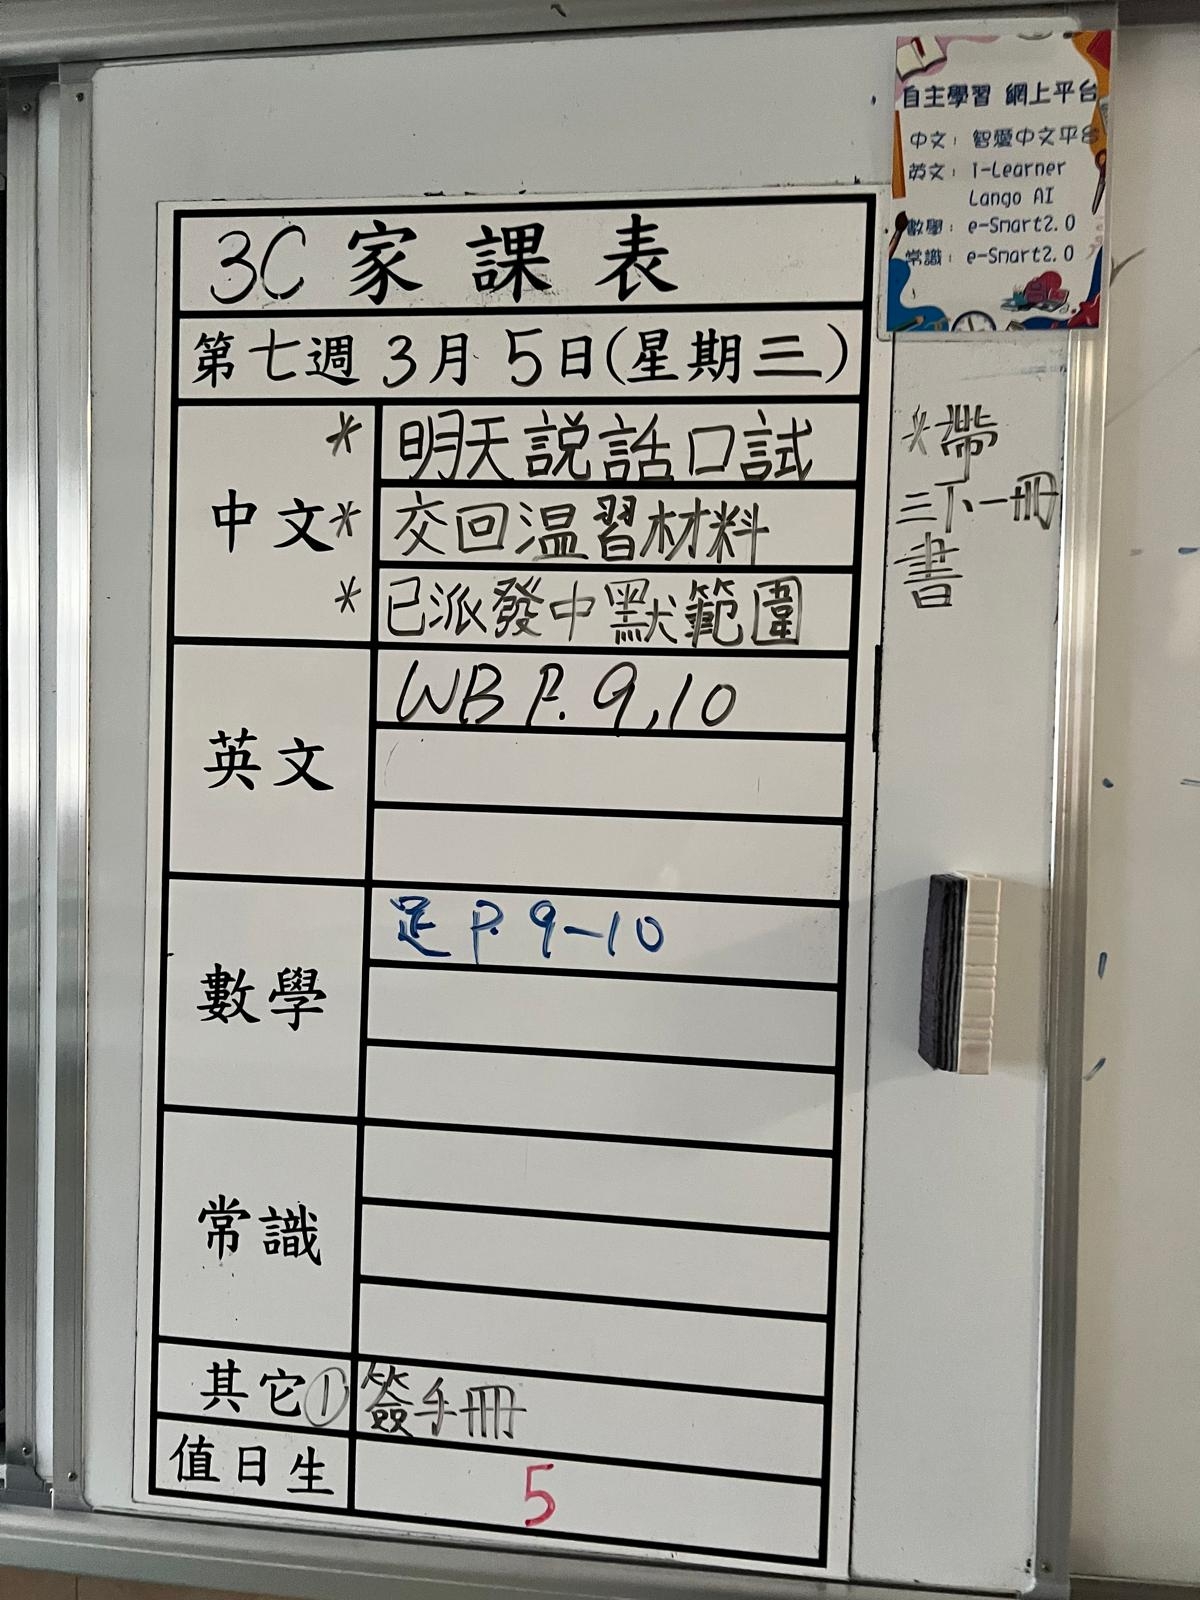 3C 家課表
第七週 3月 5日(星期三)
中文
* 明天說話口試
* 交回温習材料
* 已派發中默範圍
英文
WB P. 9,10
數學
P. 9-10
常識
其它① 簽手冊
值日生 5
自主學習 網上平台
中文: 智愛中文平台
英文: i-Learner
Lango AI
數學: e-Smart2.0
常識: e-Smart2.0
*帶
三下一冊
書